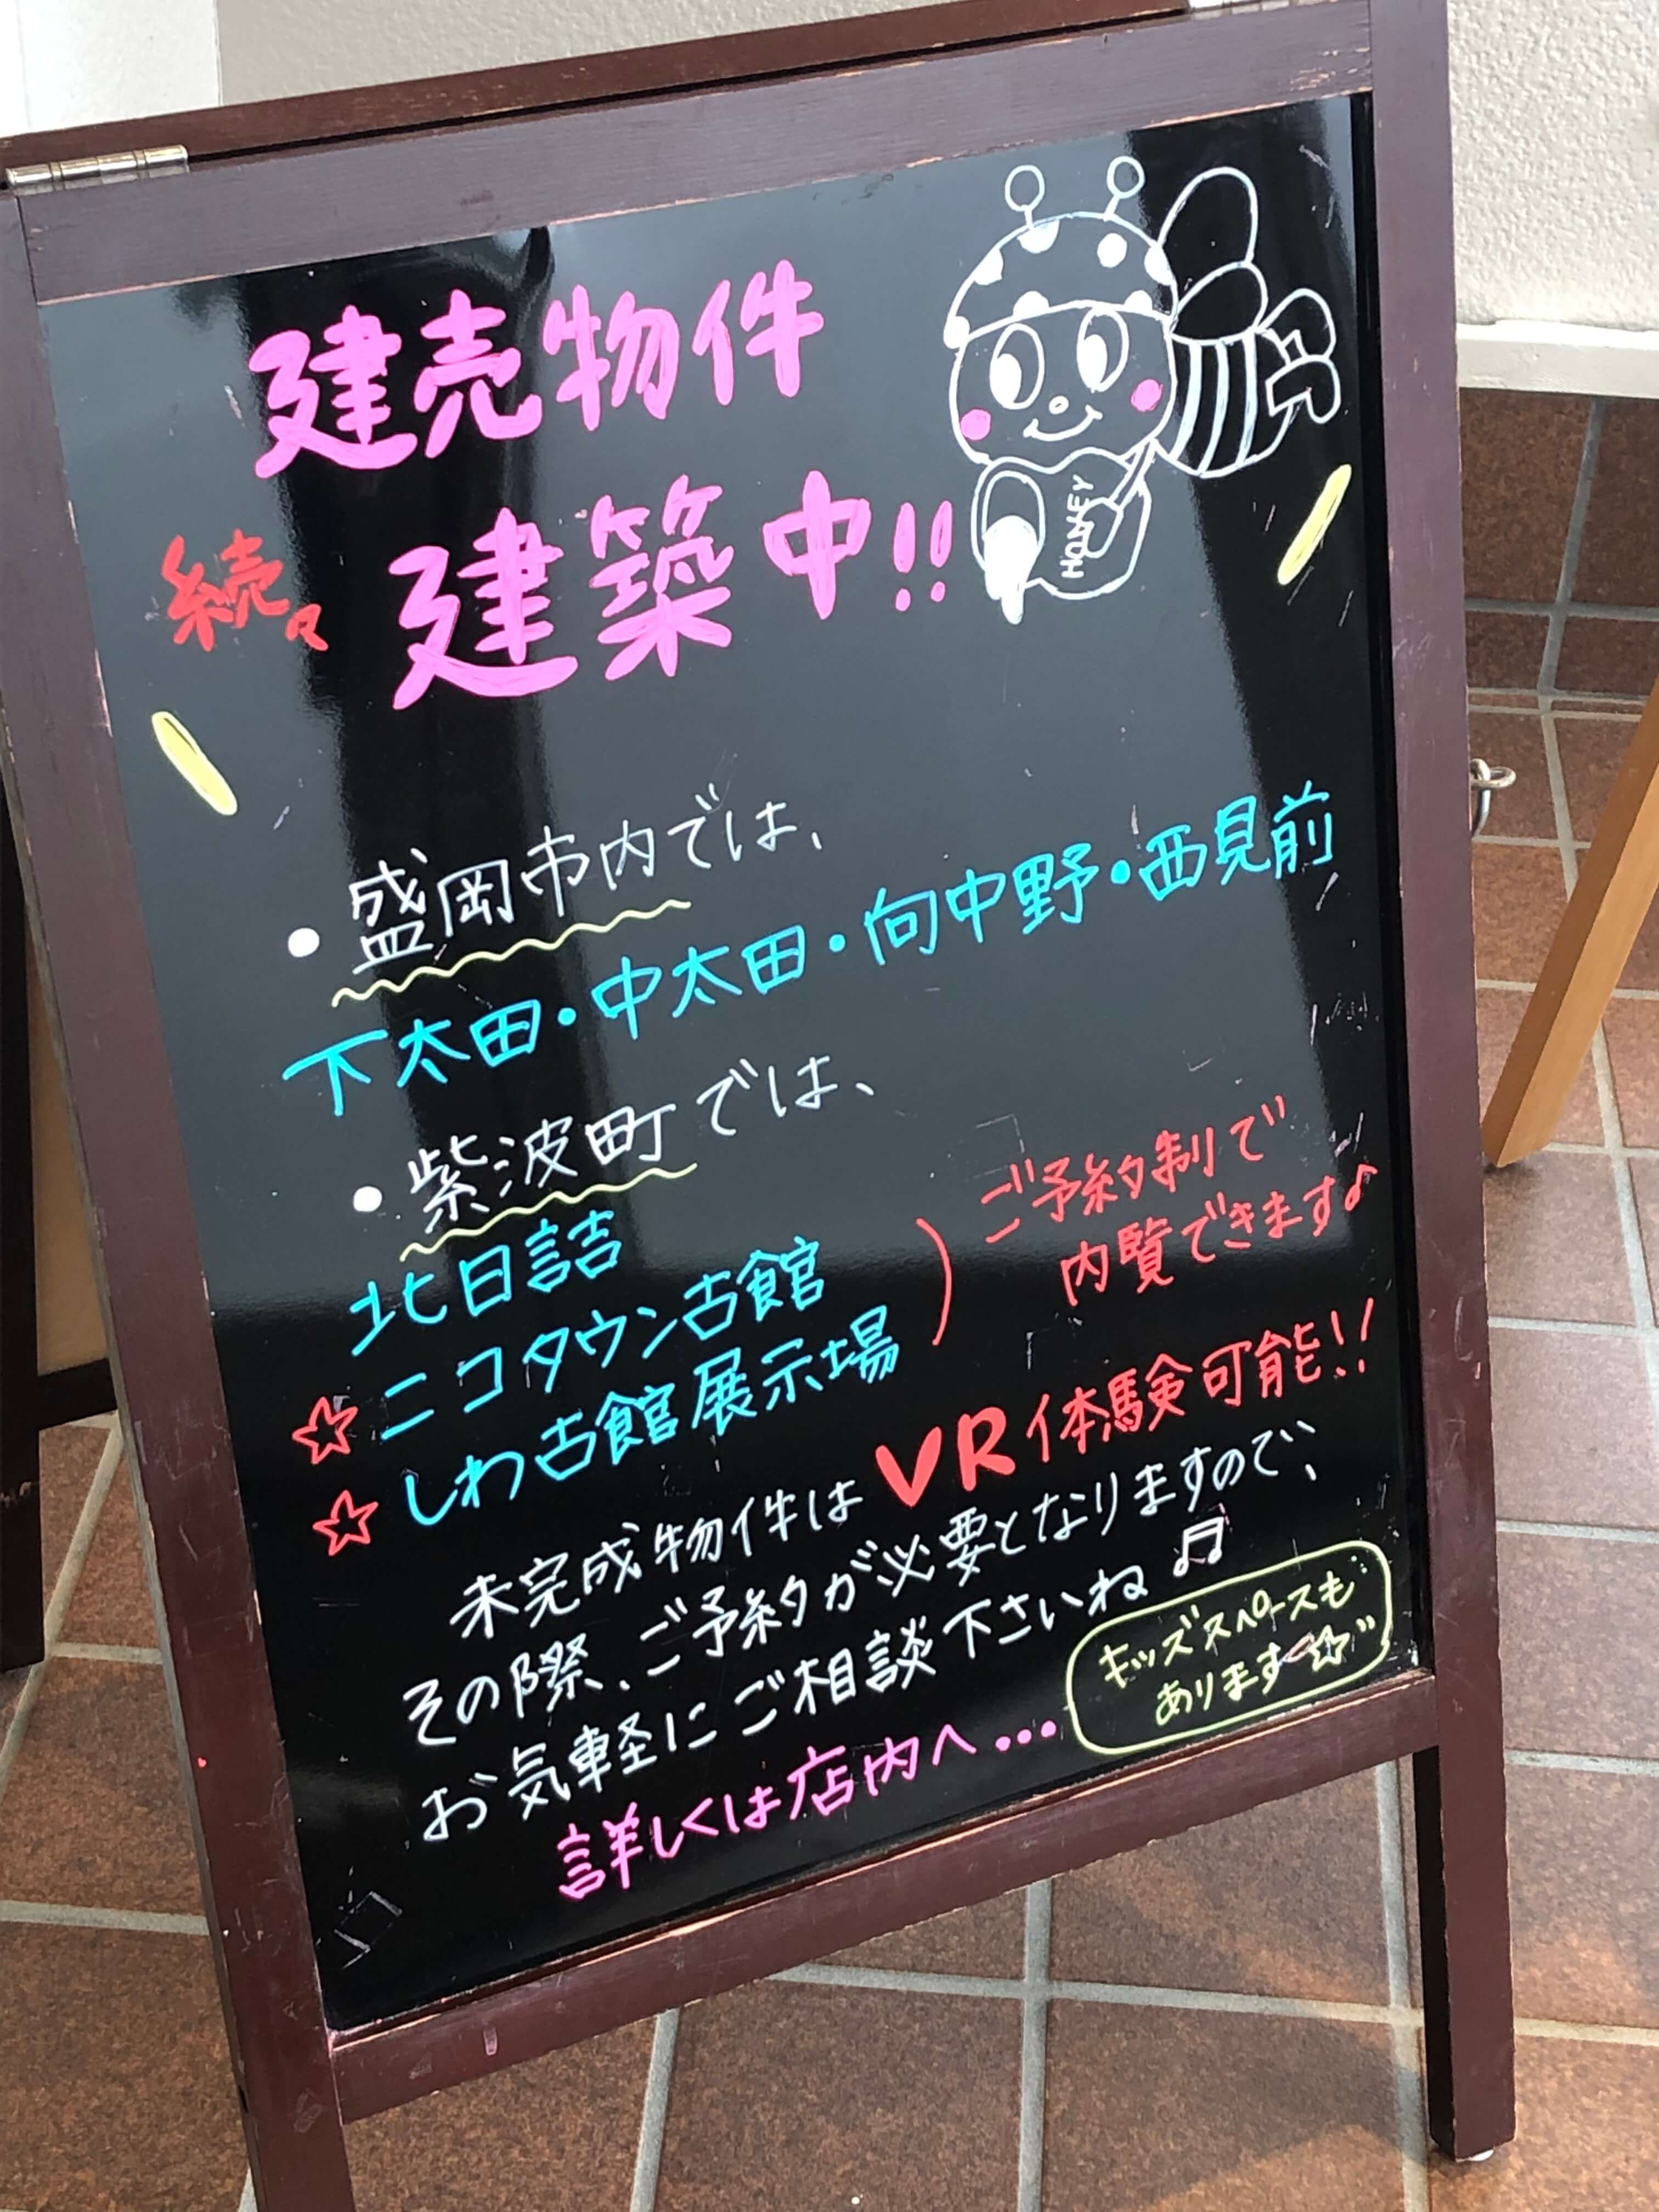 建売物件
続々建築中!!
HONEY
・盛岡市内では、
下太田・中太田・向中野・西見前
・紫波町では、
北日詰
☆ニコタウン古館
☆しわ古館展示場
ご予約制で
内覧できます♪
未完成物件はVR体験可能!!
その際、ご予約が必要となりますので、
お気軽にご相談下さいね♫
キッズスペースも
あります☆
詳しくは店内へ・・・